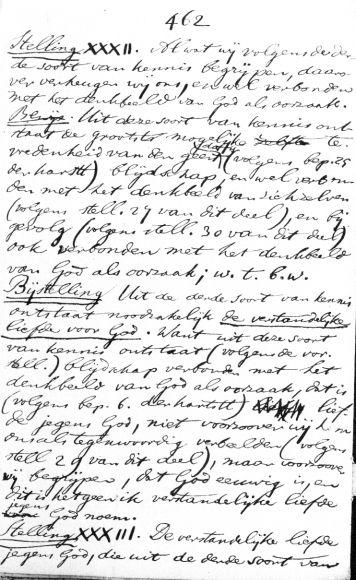 462
Stelling XXXII. Al wat wij volgens de der-
de soort van kennis begrijpen, daaro-
ver verheugen wij ons, en wel verbonden
met het denkbeeld van God als oorzaak.
Bewijs. Uit deze soort van kennis ont-
staat de grootst mogelijke te-
vredenheid van den geest (volgens bep. 25
der harstt) blijdschap, en wel verbon
den met het denkbeeld van zich zelven
(volgens stell. 27 van dit deel), en bij
gevolg (volgens stell. 30 van dit deel)
ook verbonden met het denkbeeld
van God als oorzaak; w. t. b. w.
Bijstelling Uit de derde soort van kennis
ontstaat noodzakelijk de verstandelijke
liefde voor God. Want uit deze soort
van kennis ontstaat (volgens de vor.
stell.) blijdschap verbonden met het
denkbeeld van God als oorzaak, dat is
(volgens bep. 6. der hartstt) lief-
de jegens God, niet voorzoover wij hem
ons als tegenwoordig verbeelden (volgens
stell 29 van dit deel), maar voorzoover
wij begrijpen, dat God eeuwig is, en
dit is hetgeen ik verstandelijke liefde
jegens God noem.
Stelling XXXIII. De verstandelijke liefde
jegens God, die uit de derde soort van